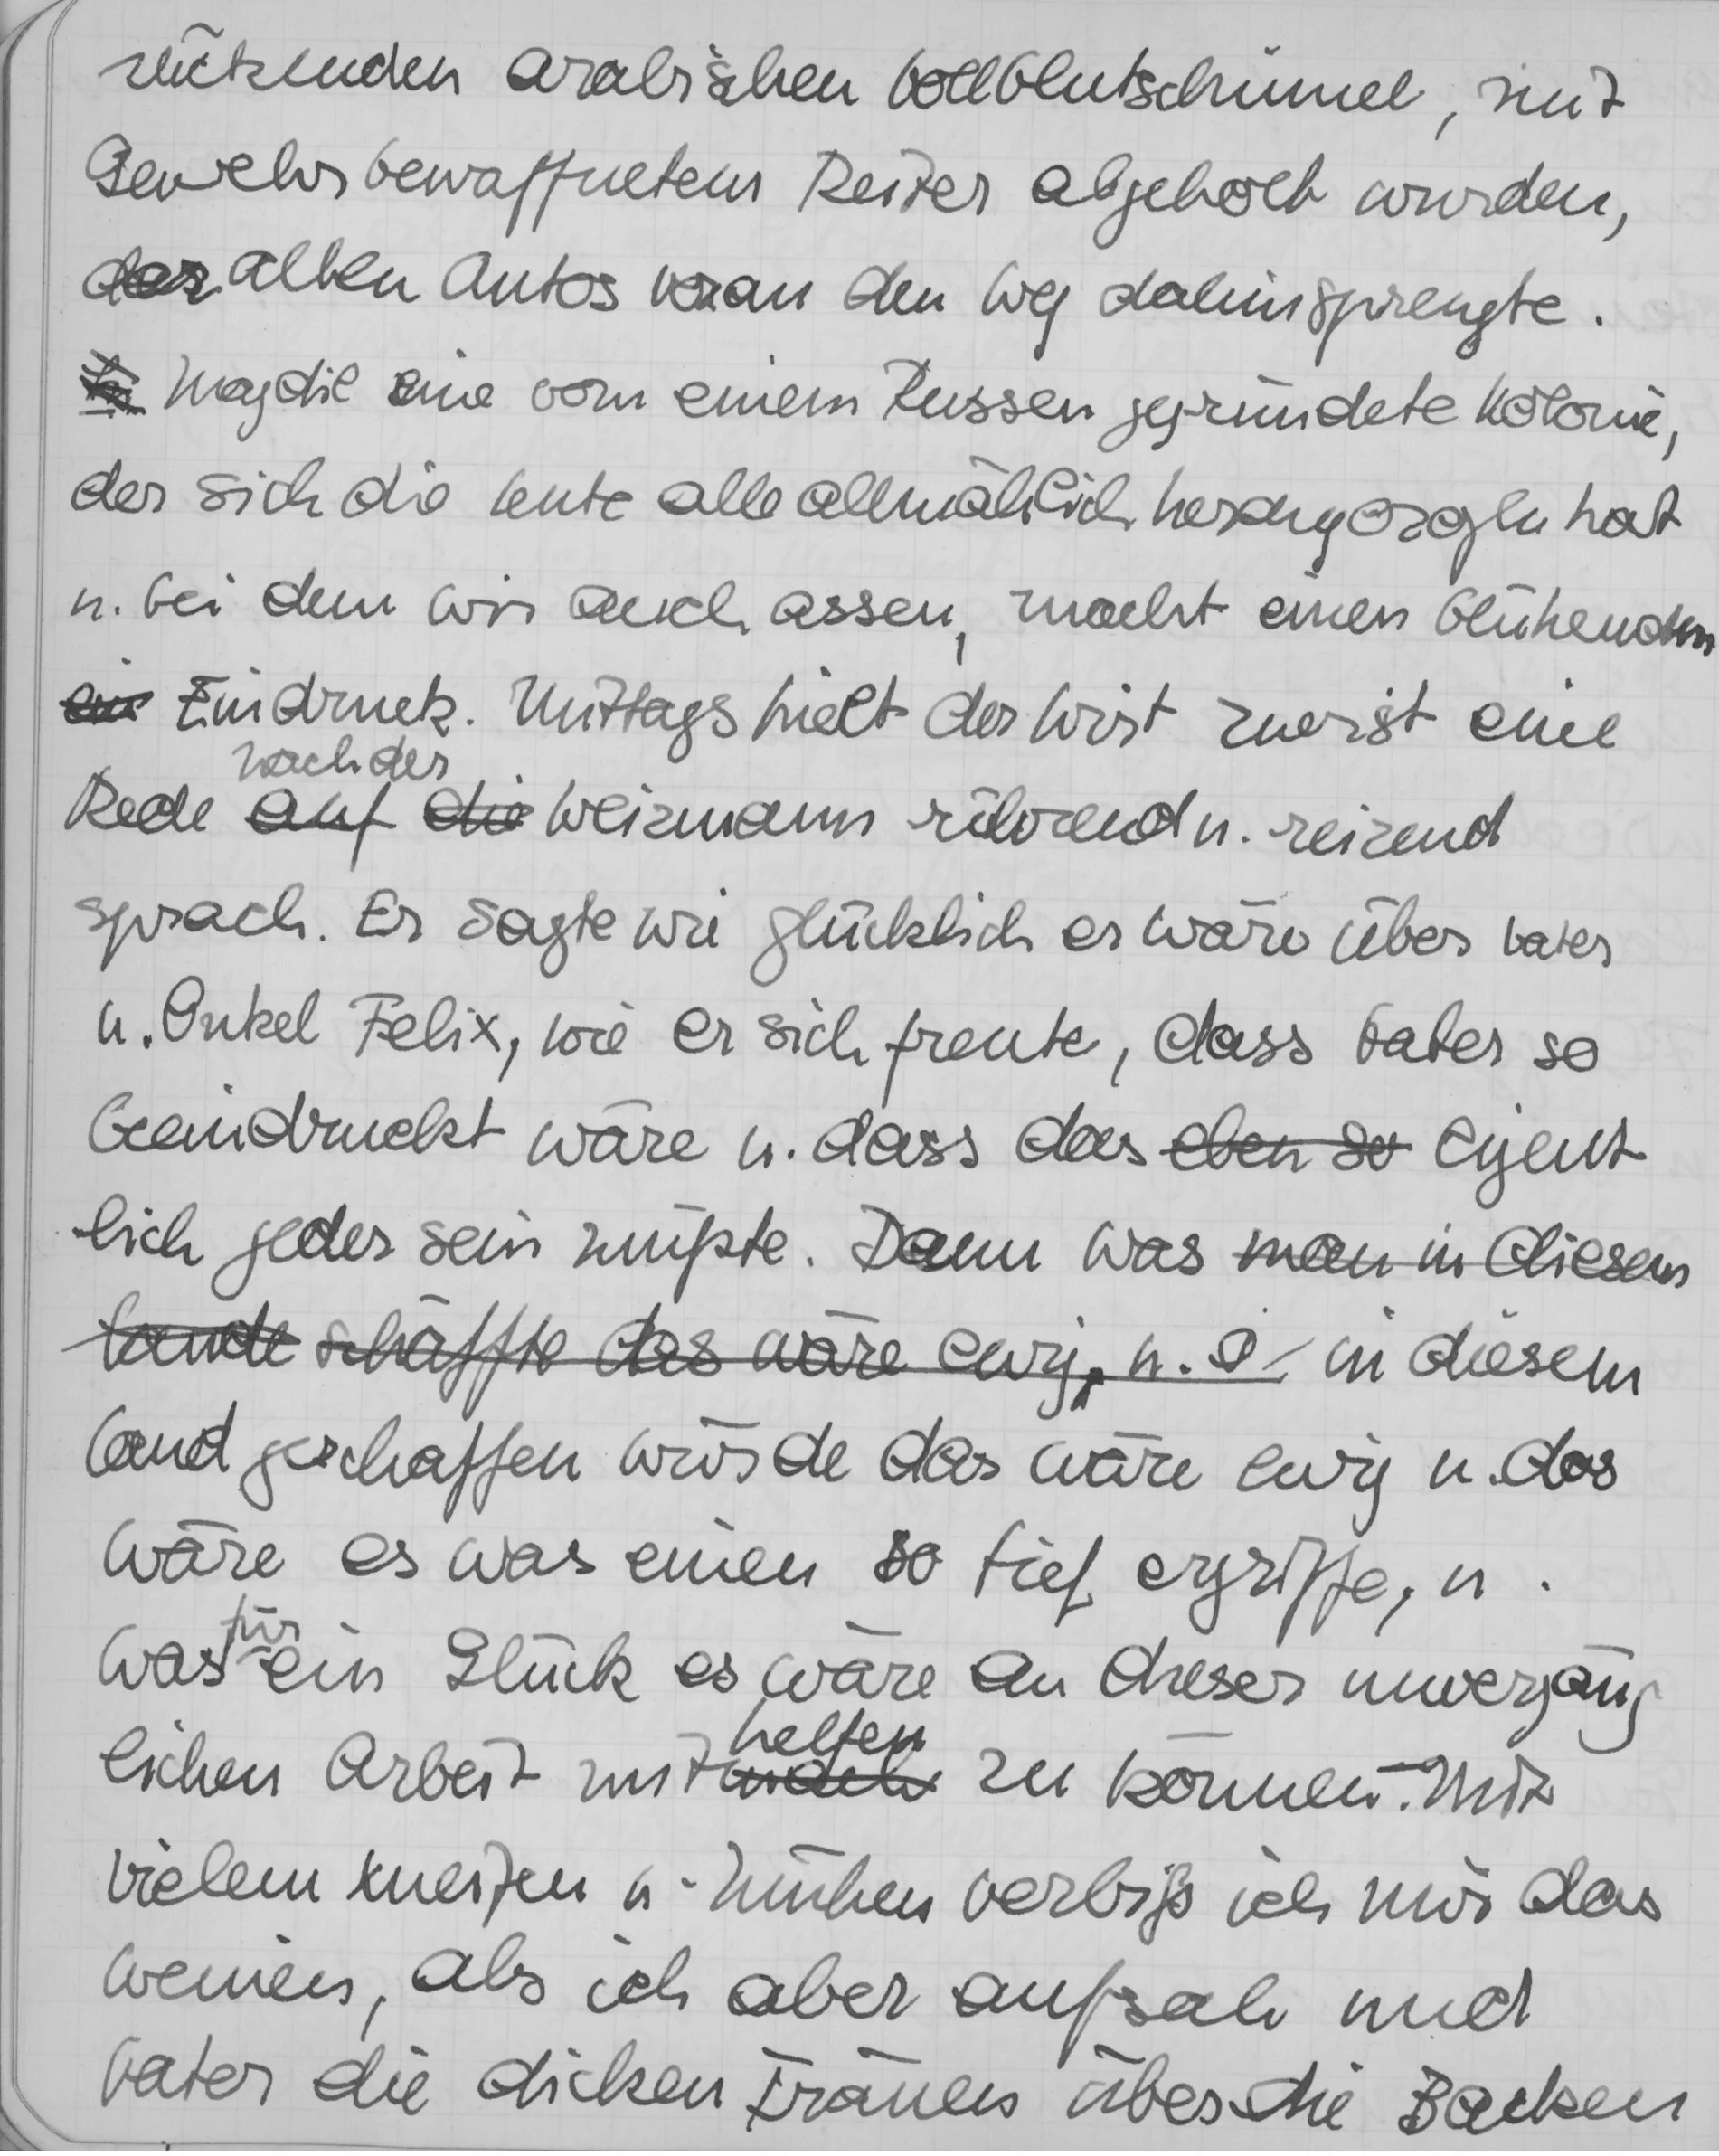 rückenden arabischen Vollblutschimmel, mit
Gewehr bewaffnetem Reiter abgeholt wurden,
der allen Autos voran den Weg dahinsprengte.
Magdil eine vom einem Russen gegründete Kolonie,
der sich die Leute alle allmählich hat
u. bei dem wir auch assen, macht einen blühenden
ein Eindruck. Mittags hielt der Wirt zuerst eine
nach der
Rede auf die Weizmann rührend u. reizend
sprach. Er sagte wie glücklich er wäre über Vater
u. Onkel Felix, wie er sich freute, dass Vater so
beeindruckt wäre u. dass das eben so eigent
lich jeder sein müßte. Denn was man in diesem
Lande schaffte das wäre ewig, u. in diesem
Land geschaffen würde das wäre ewig u. das
wäre es was einen so tief ergriffe, u.
für
was ein Glück es wäre an dieser unvergäng
helfen
lichen Arbeit mit zu können. Mit
vielem Kneifen u. Mühen verbiß ich mir das
weinen, als ich aber aufsah und
Vater die dicken Tränen über die Backen